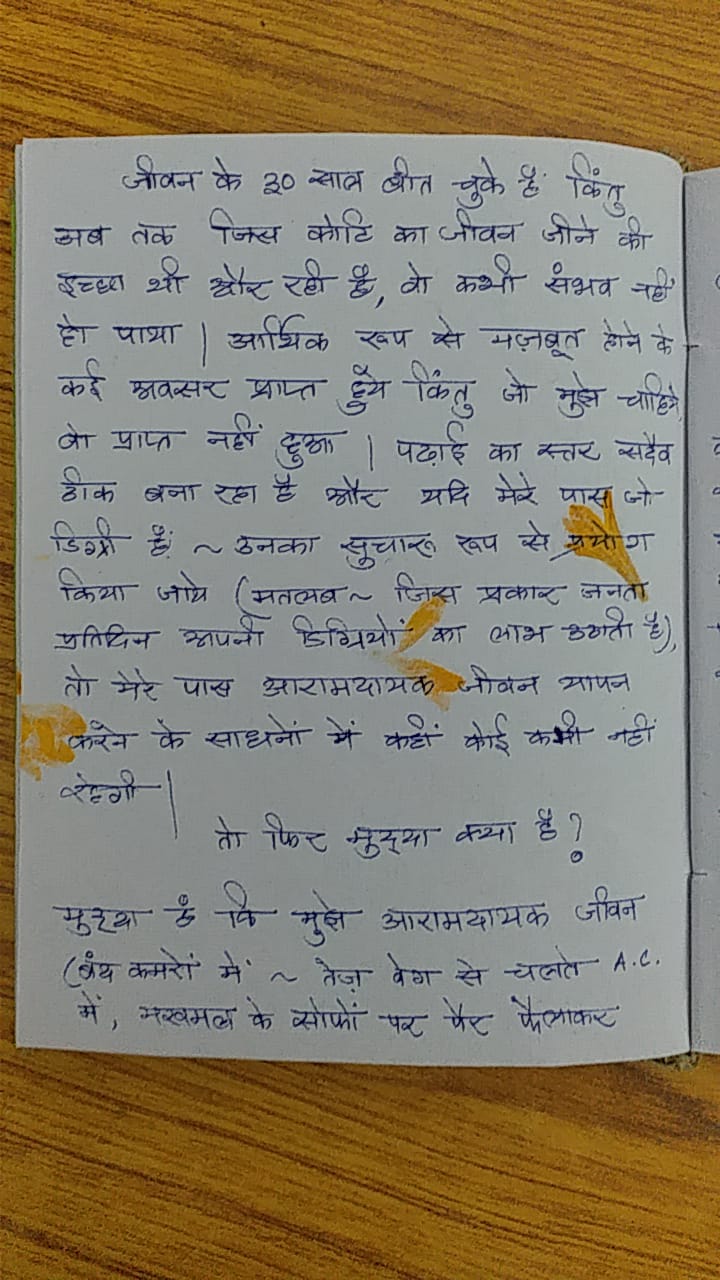 जीवन के ३० साल बीत चुके हैं किंतु
अब तक जिस कोटि का जीवन जीने की
इच्छा थी और रही है, वो कभी संभव नहीं
हो पाया | आर्थिक रूप से मज़बूत होने के
कई अवसर प्राप्त हुये किंतु जो मुझे चाहिये
वो प्राप्त नहीं हुआ | पढ़ाई का स्तर सदैव
ठीक बना रहा है और यदि मेरे पास जो
डिग्री हैं ~ उनका सुचारू रूप से प्रयोग
किया जाये (मतलब ~ जिस प्रकार जनता
प्रतिदिन अपनी डिग्रियों का लाभ उठाती है),
तो मेरे पास आरामदायक जीवन यापन
करने के साधनों में कहीं कोई कमी नहीं
रहेगी |
तो फिर मुद्दया क्या है?
मुद्दया है कि मुझे आरामदायक जीवन
(बंद कमरों में ~ तेज़ वेग से चलते A.C.
में, मखमल के सोफों पर पैर फैलाकर